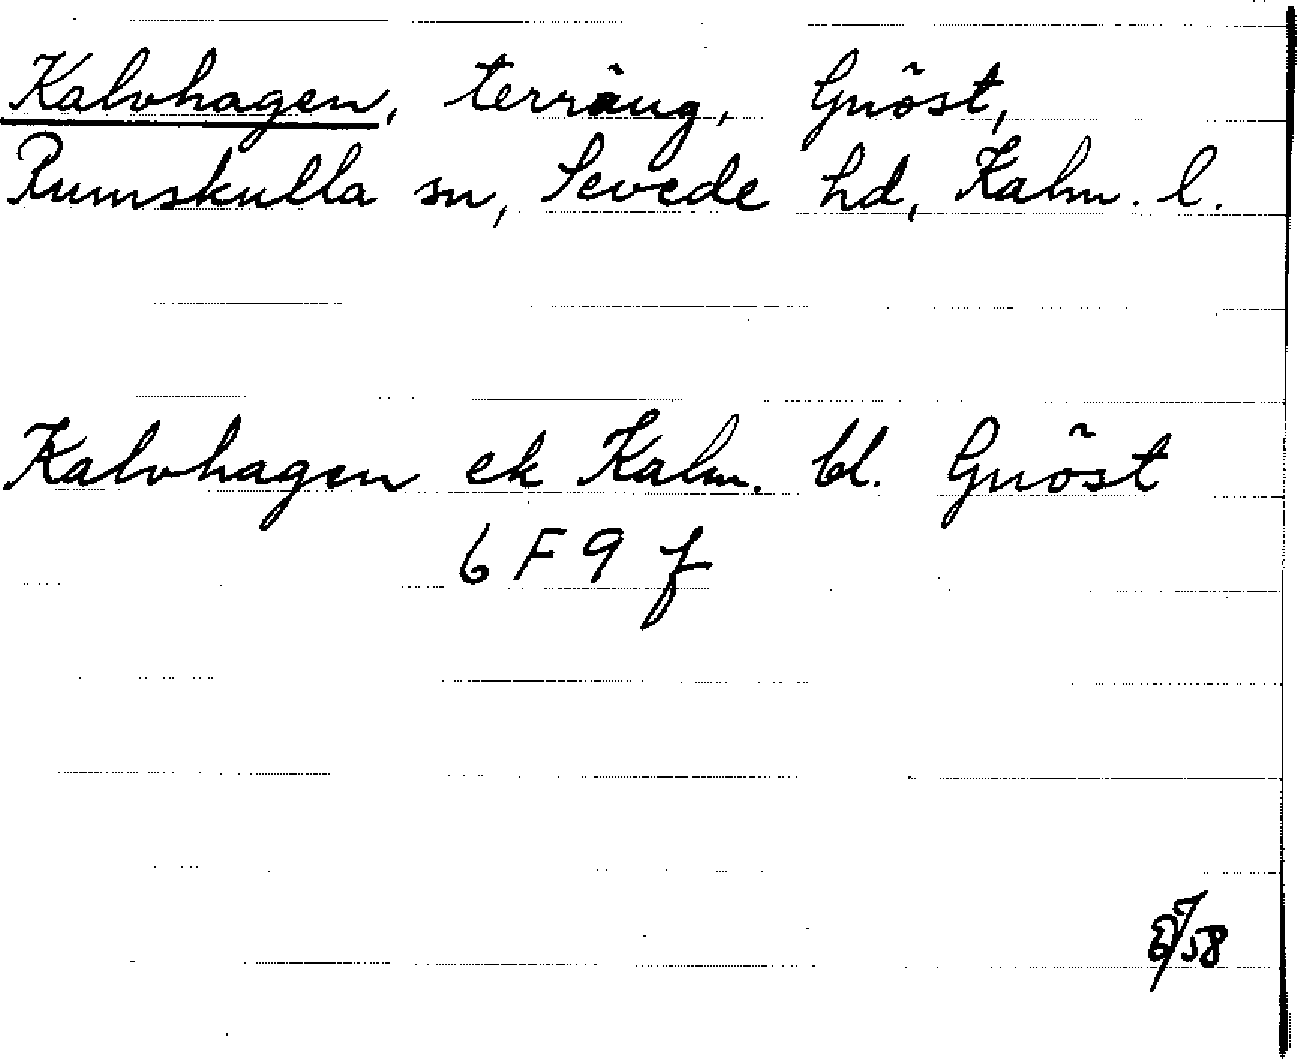 Kalvhagen, terräng, Gnöst,
Rumskulla sn, Sevede hd, Kalm. l.
Kalvhagen ek Kalm. bl. Gnöst
6 F 9 f